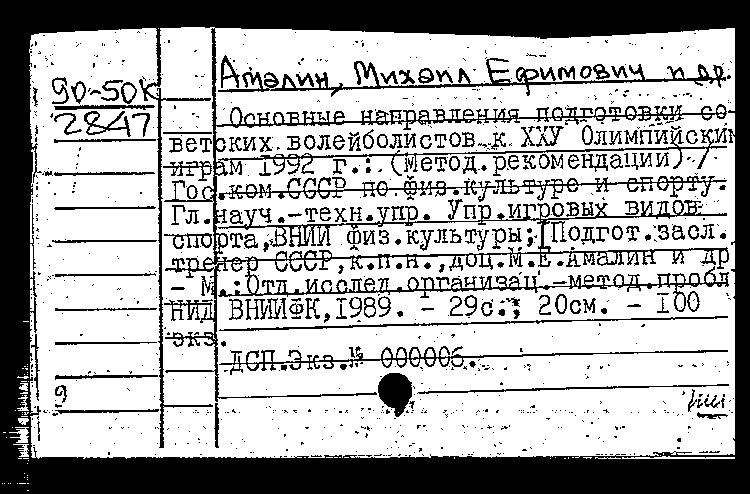 Амалин, Михаил Ефимович и др.
90-50К
2847
Основные направления подготовки со-
ветских волейболистов к ХХУ Олимпийским
играм 1992 г.: (Метод.рекомендации) /
Гос.ком.СССР по физ.культуре и спорту.
Гл.науч.-техн.упр. Упр.игровых видов
спорта,ВНИИ физ.культуры;[Подгот.засл.
тренер СССР,к.п.н.,доц.М.Е.Амалин и др
- М.:Отд.исслед.организац.-метод.пробл
НИД ВНИИФК,1989. - 29с.; 20см. - 100
экз.
ДСП.Экз.№ 000006.
9